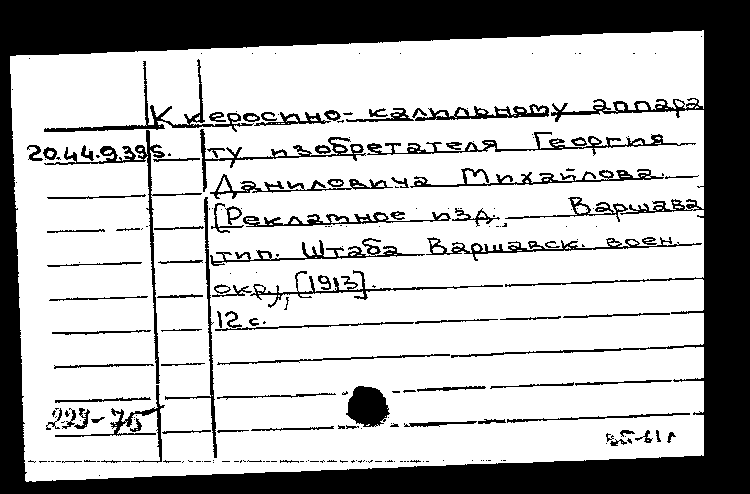 К керосино-калильному аппара
20.44.9.395. ту изобретателя Георгия
Даниловича Михайлова.
[Рекламное изд. Варшава
тип. Штаба Варшавск. воен.
окр., [1913].
12 с.
229-76